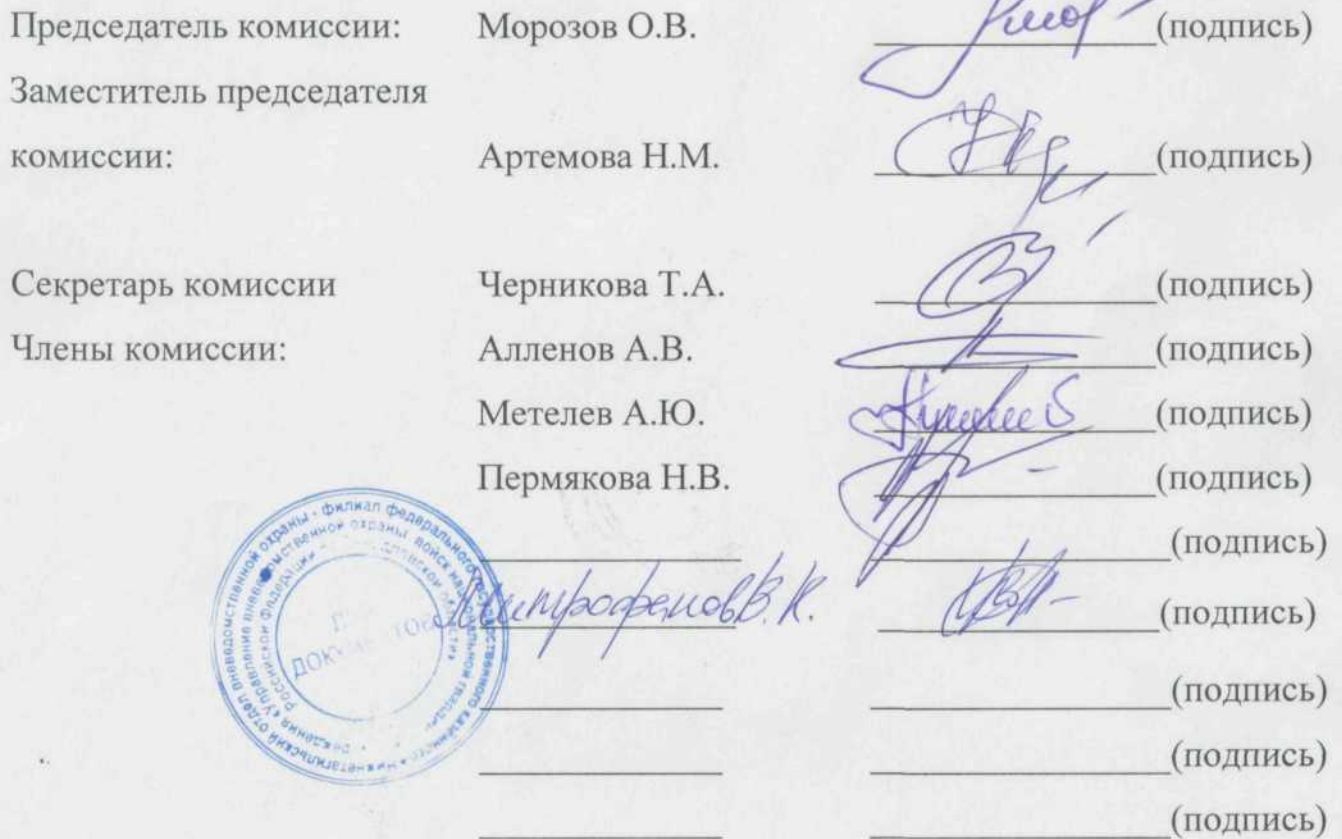 Председатель комиссии: Морозов О.В. (подпись)
Заместитель председателя
комиссии: Артемова Н.М. (подпись)
Секретарь комиссии Черникова Т.А. (подпись)
Члены комиссии: Алленов А.В. (подпись)
Метелев А.Ю. (подпись)
Пермякова Н.В. (подпись)
(подпись)
Митрофанов В.К. (подпись)
(подпись)
(подпись)
(подпись)
Нижнетагильский отдел вневедомственной охраны - филиал федерального государственного казенного